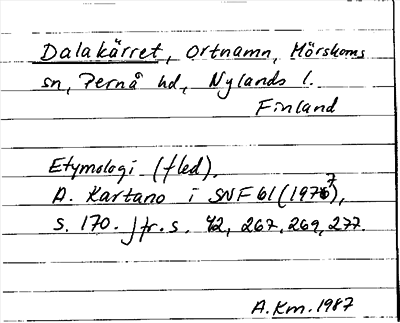 Dalakärret, Ortnamn, Mörskoms
sn, Pernå hd, Nylands l.
Finland
Etymologi (fled).
A. Kartano i SNF 61 (1977),
s. 170. Jfr. s. 42, 267, 269, 277.
A.Km. 1987